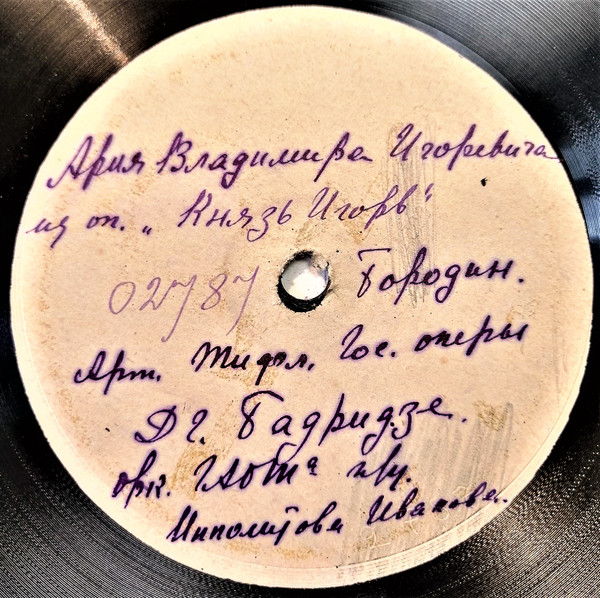 Ария Владимира Игоревича
из оп. „Князь Игорь“
02787 Бородин.
Арт. Тифл. Гос. оперы
Д. Г. Бадридзе.
орк. ГАБТа п/у.
Ипполитова Иванова.